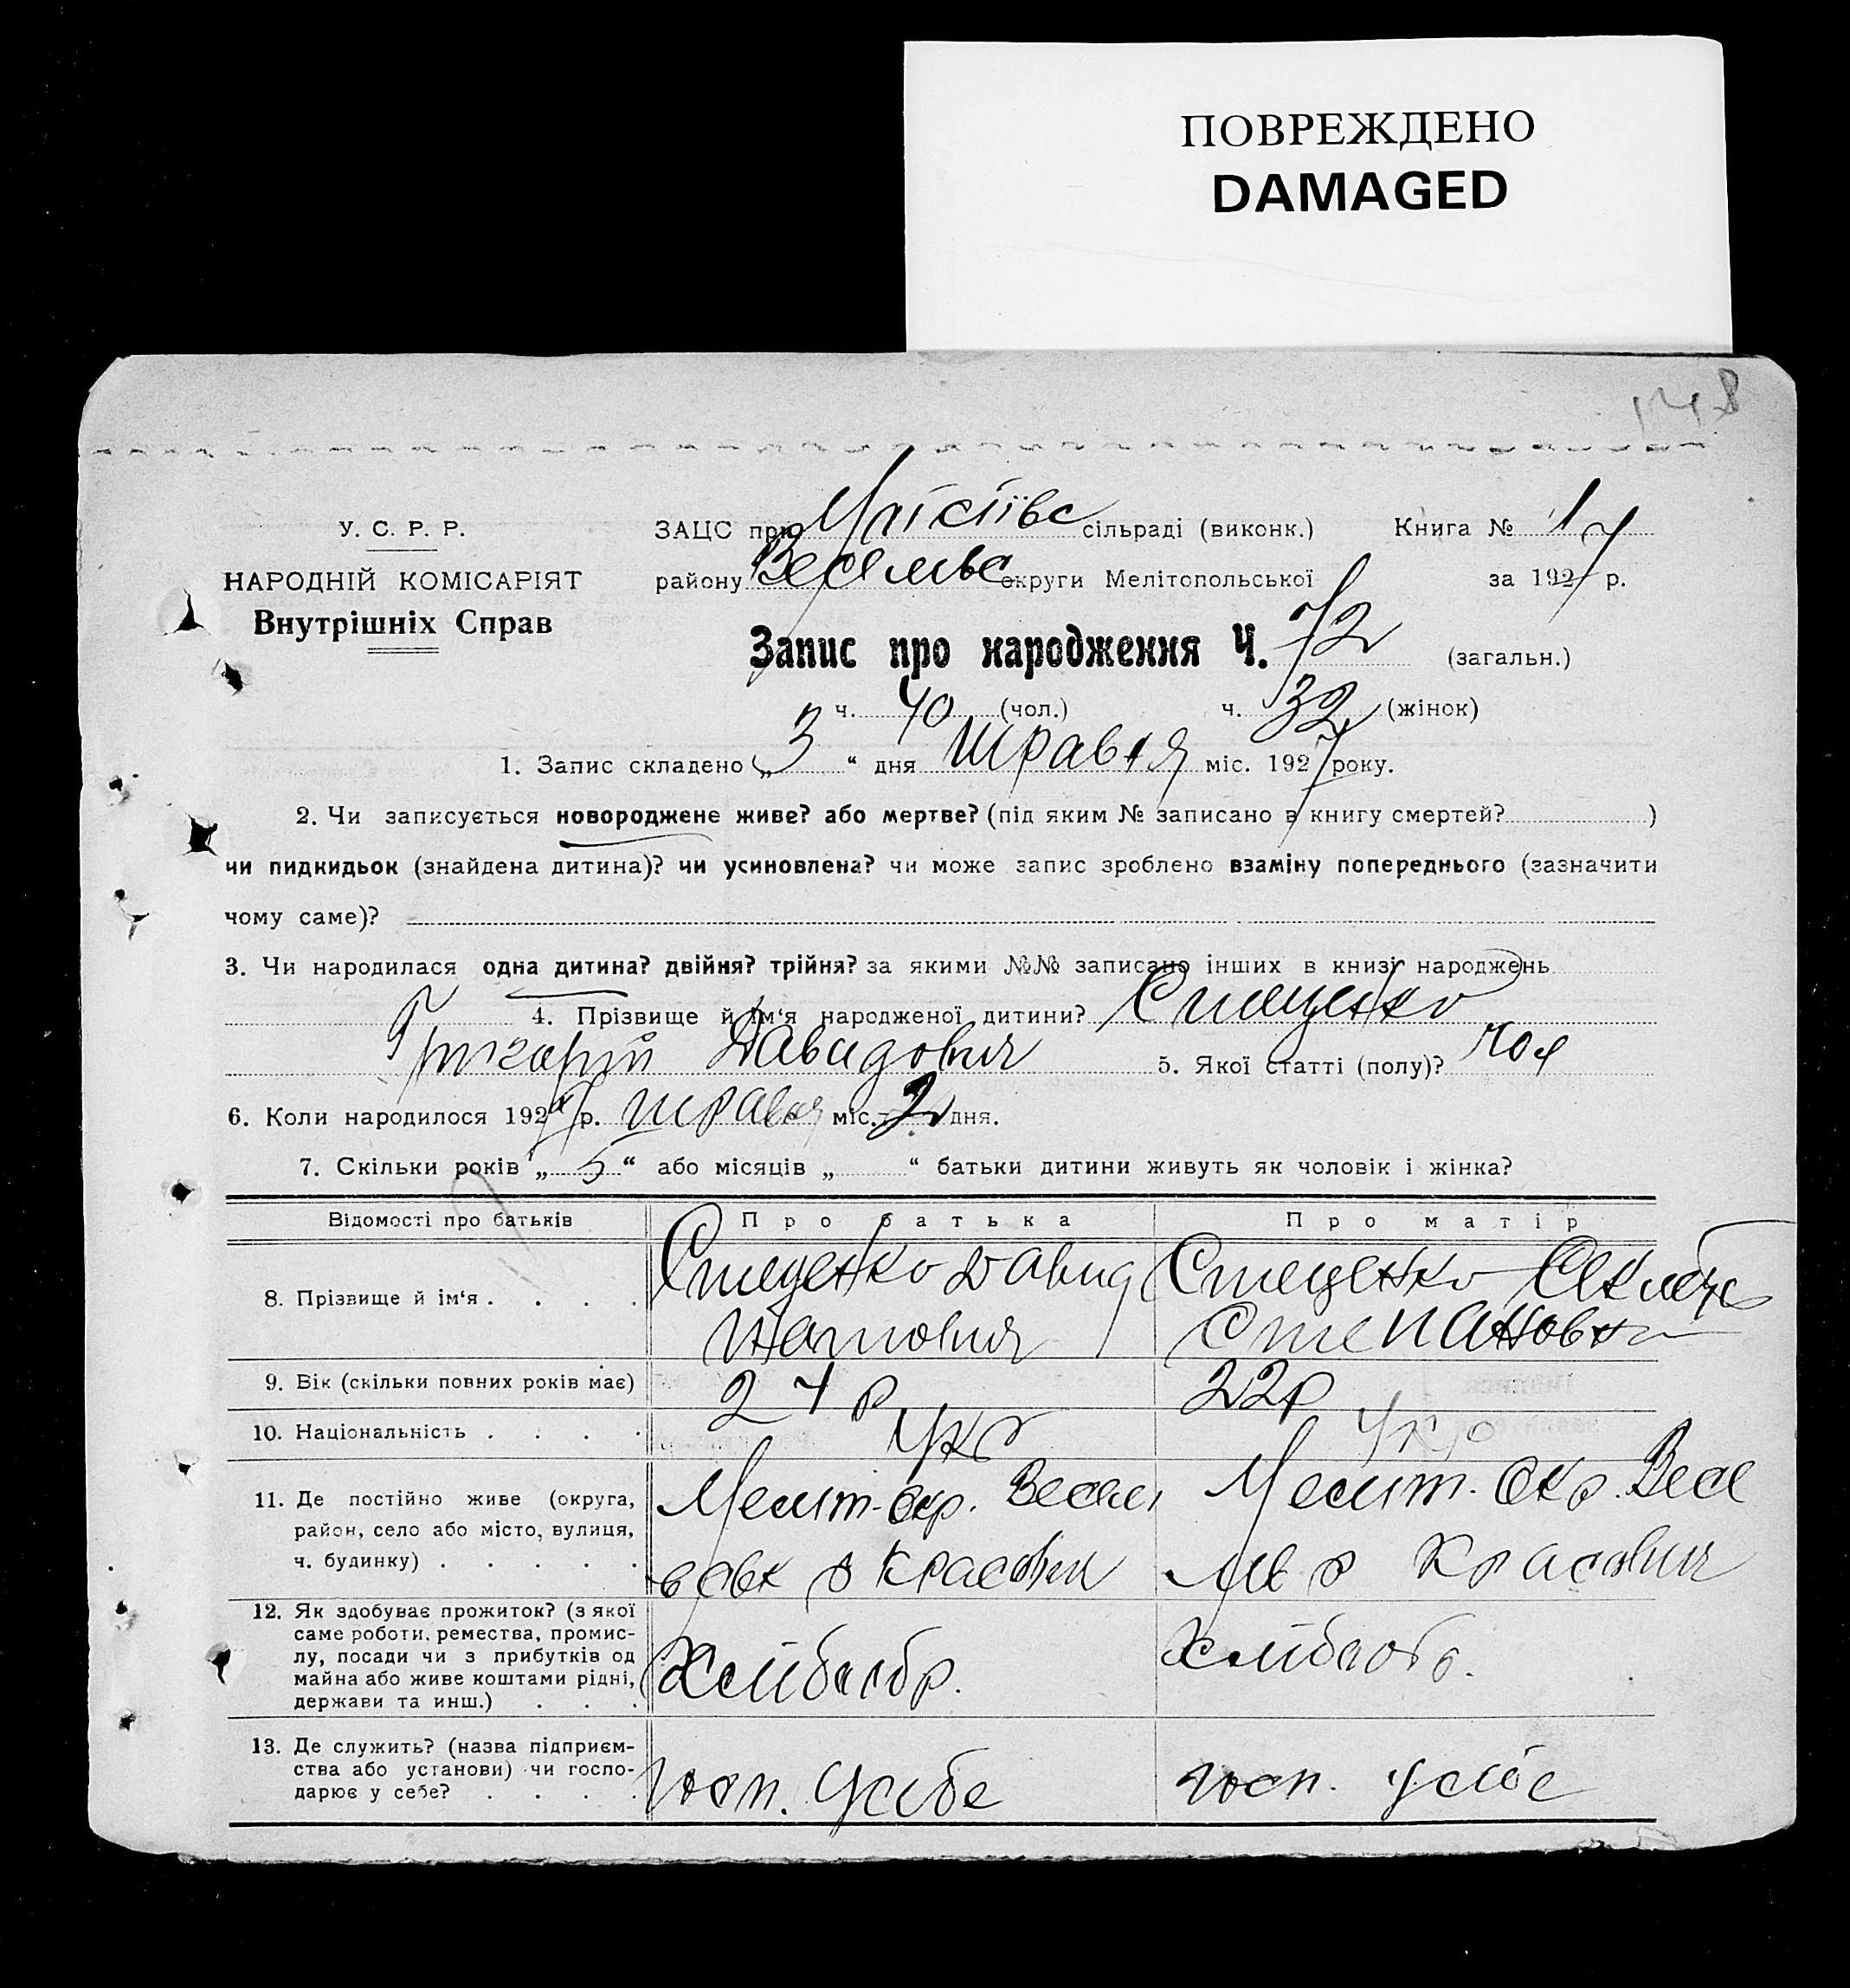 ПОВРЕЖДЕНО
DAMAGED
148
У. С. Р. Р.
НАРОДНІЙ КОМІСАРІЯТ
Внутрішніх Справ
ЗАЦС при сільраді (виконк.) Книга № 1
району округи Мелітопольської за 1927 р.
Запис про народження Ч. 72 (загальн.)
ч. 40 (чол.) ч. 32 (жінок)
1. Запис складено „ 3 “ дня травня міс. 1927 року.
2. Чи записується новороджене живе? або мертве? (під яким № записано в книгу смертей? )
чи пидкидьок (знайдена дитина)? чи усиновлена? чи може запис зроблено взаміну попереднього (зазначити
чому саме)?
3. Чи народилася одна дитина? двійня? трійня? за якими №№ записано інших в книзі народжень
4. Прізвище й ім‘я народженої дитини? Стеценко
Григорій Давидович 5. Якої статті (полу)? чол
6. Коли народилося 1927 р. травня міс. 2 дня.
7. Скільки років „ 5 “ або місяців „ “ батьки дитини живуть як чоловік і жінка?
Відомості про батьків Про батька Про матір
8. Прізвище й ім‘я . . . . Стеценко Давид Стеценко
Степановна
9. Вік (скільки повних років має) 24 р 22р
10. Національність . . . . Укр Укр
11. Де постійно живе (округа,
район, село або місто, вулиця,
ч. будинку) . . . . .
Мелит. окр. Мелит. Окр. Весе
12. Як здобуває прожиток? (з якої
саме роботи, ремества, промис-
лу, посади чи з прибутків од
майна або живе коштами рідні,
держави та инш.) . . .
Хліборобр. Хліборобр.
13. Де служить? (назва підприєм-
ства або установи) чи госпо-
дарює у себе? . . . .
госп. усебе госп. усебе